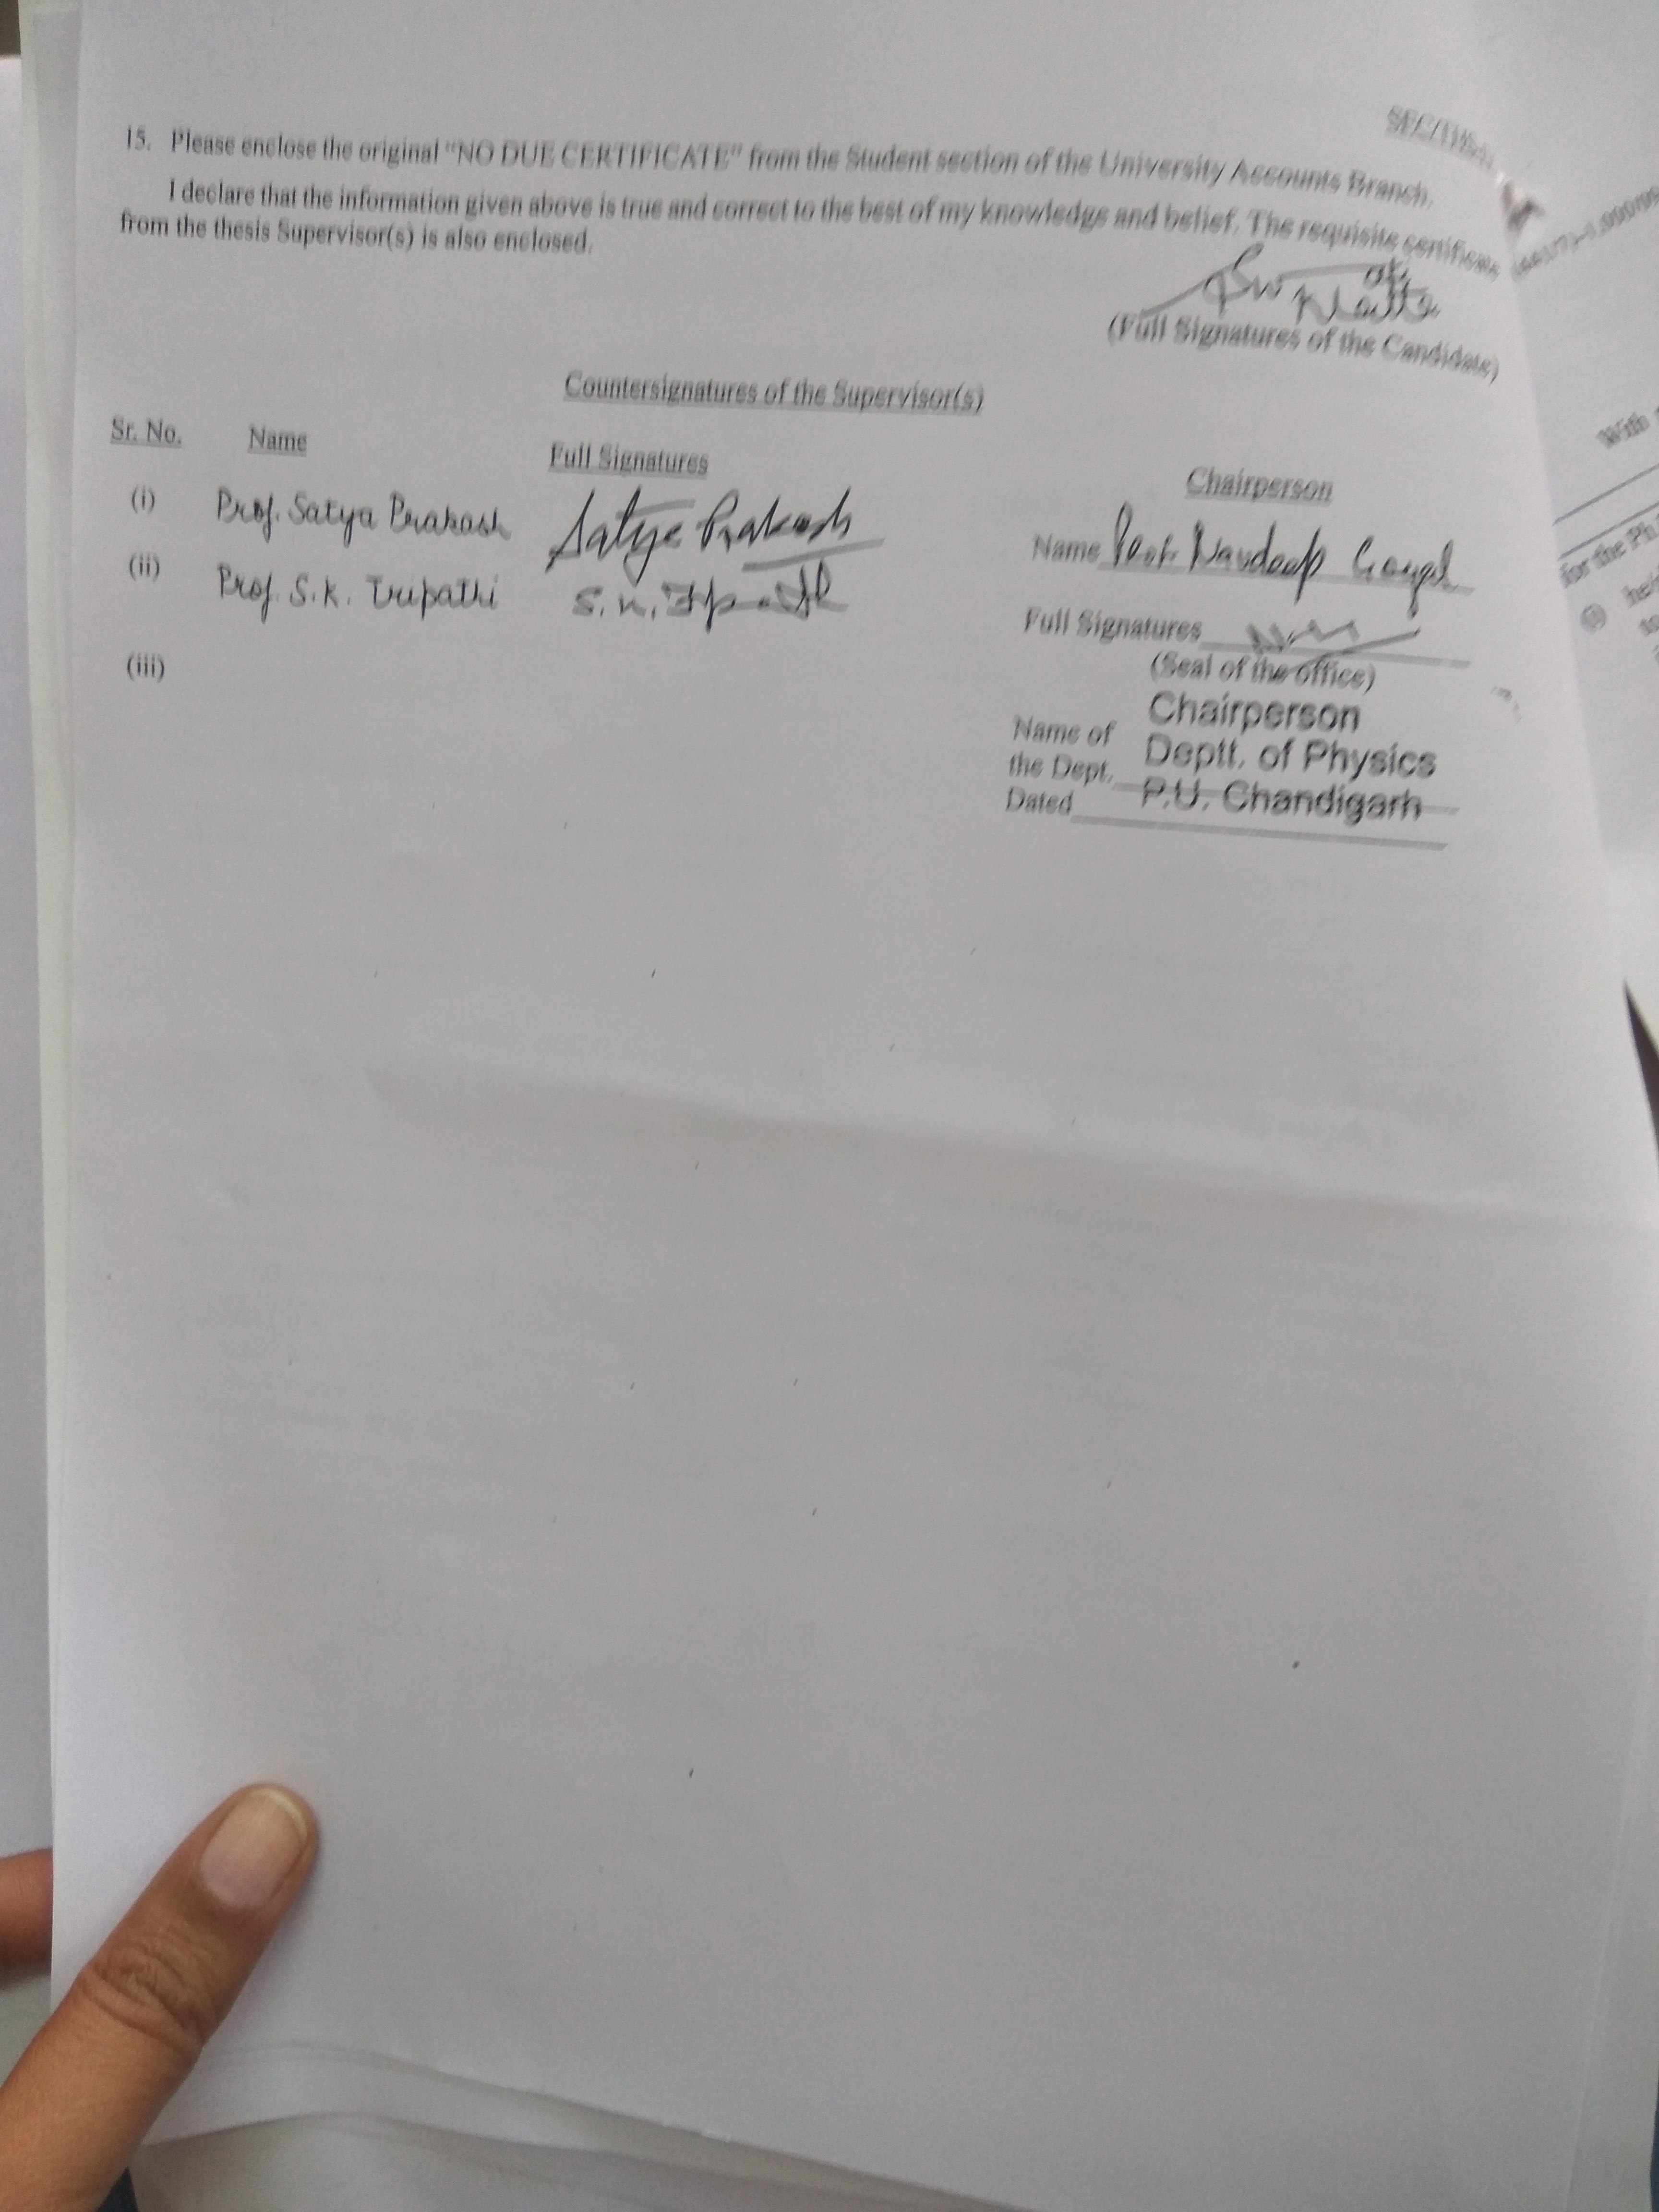 SEC/TH
15. Please enclose the original "NO DUE CERTIFICATE" from the Student section of the University Accounts Branch.
I declare that the information given above is true and correct to the best of my knowledge and belief. The requisite certificate
from the thesis Supervisor(s) is also enclosed.
(Full Signatures of the Candidate)
Countersignatures of the Supervisor(s)
Sr. No. Name Full Signatures
(i) Prof. Satya Prakash Satya Prakash
(ii) Prof. S.K. Tripathi
(iii)
Chairperson
Name Prof. Navdeep Goyal
Full Signatures
(Seal of the office)
Chairperson
Name of Deptt. of Physics
the Dept. P.U. Chandigarh
Dated
With
for the Ph.